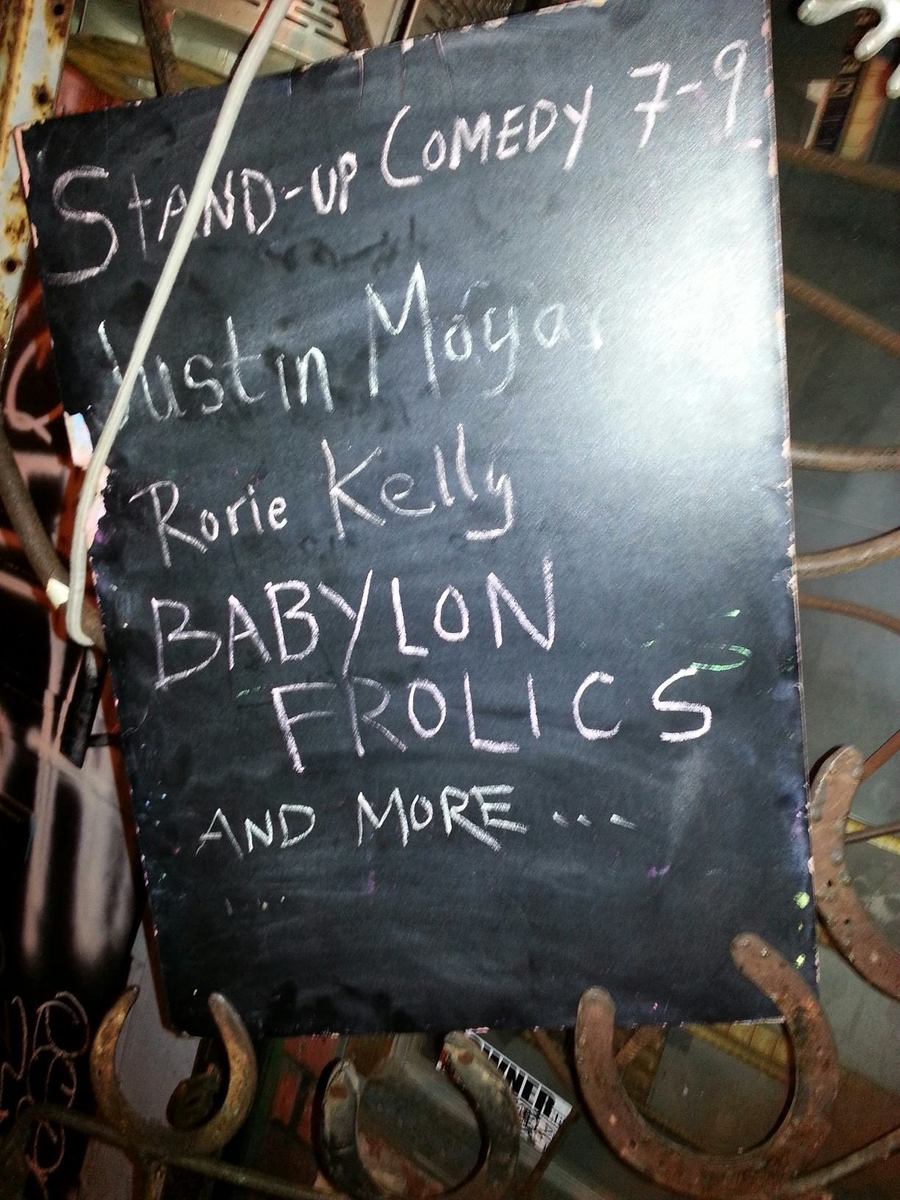 STAND-UP COMEDY 7-9
Justin Moyar
Rorie Kelly
BABYLON
FROLICS
AND MORE...
....